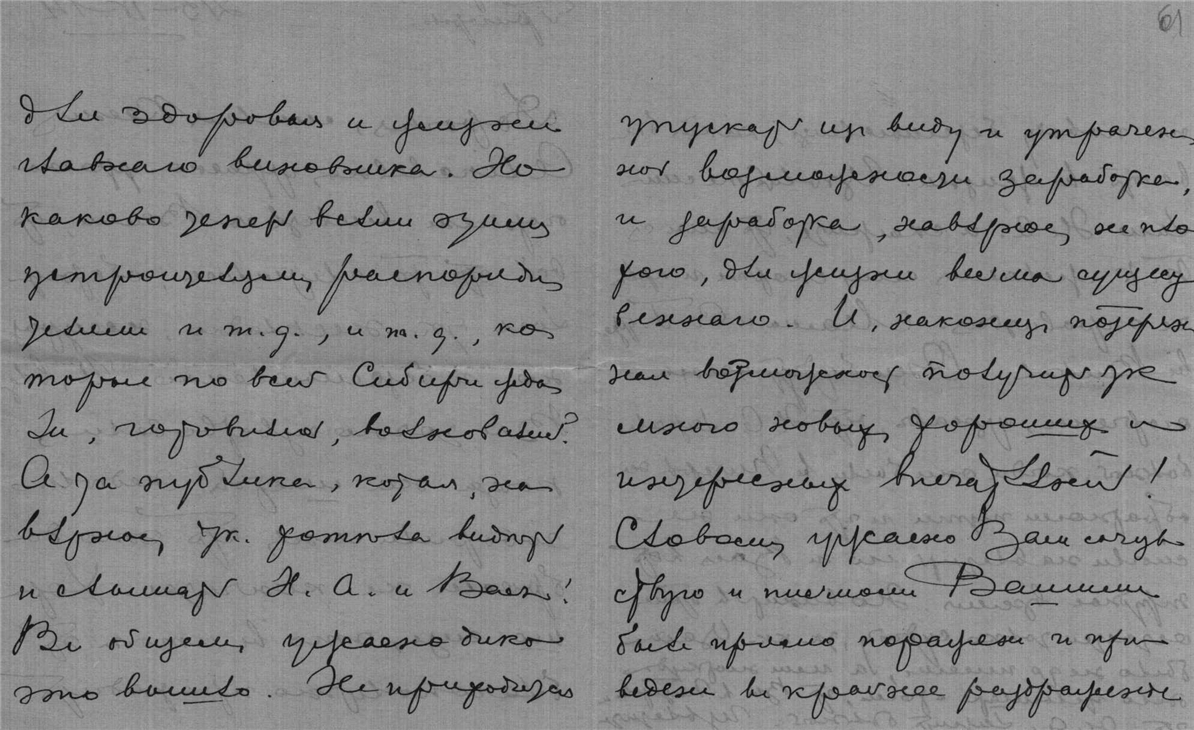 61
для здоровья и жизни
главнаго виновника. Но
каково теперь всем этим
устроителям, распоряди
телям и т.д., и т.д., ко
торые по всей Сибири жда
ли, готовились, волновались?
А та публика, которая, на
верное, так хотела видеть
и слышать Н. А. и Васъ!
Въ общем, ужасно дико
это вышло. Не приходится
упускать из виду и утрачен
ной возможности заработка,
и заработка, наверное, не пло
хого, для жизни весьма сущест
веннаго. И, наконец, потерян
ная возможность получить так
много новых, хороших и
интересных впечатлений!
Словом, ужасно Вам сочув
ствую и письмом Вашим
был прямо поражен и при
веден в крайнее раздражение